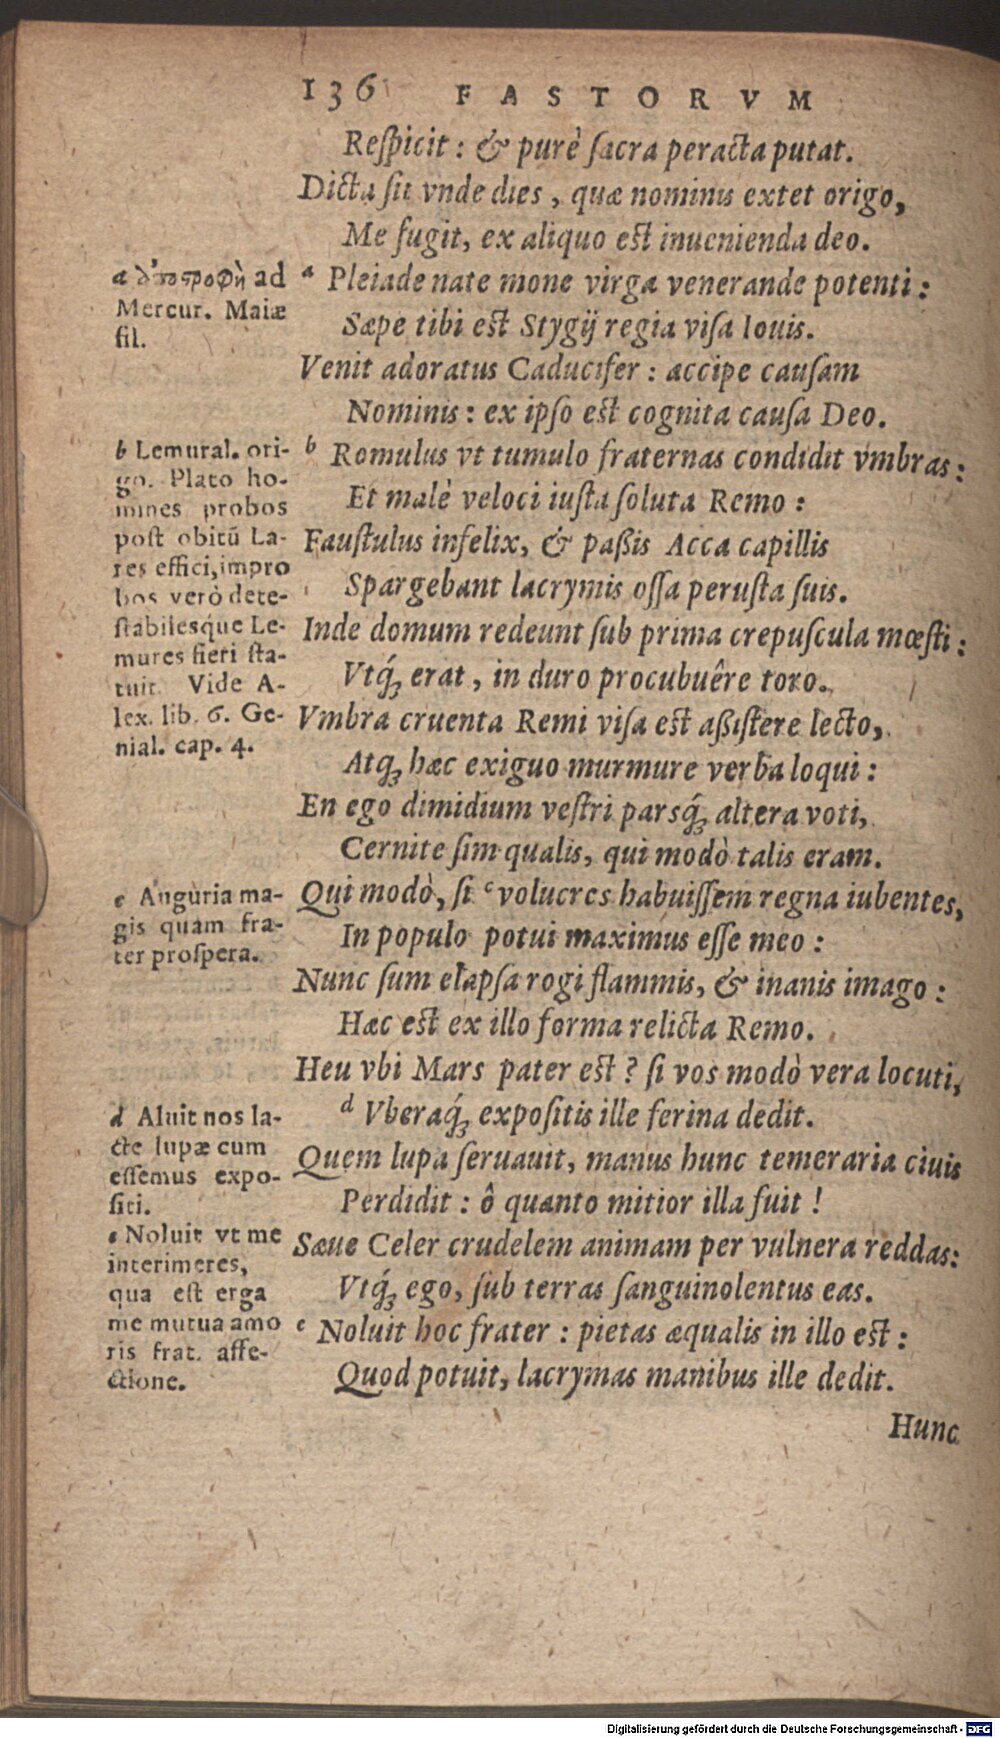 136 FASTORVM
Reſpicit: & purè ſacra peracta putat.
Dicta ſit vnde dies, quæ nominis extet origo,
Me fugit, ex aliquo est inuenienda deo.
a Pleiade nate mone virga venerande potenti:
Sæpe tibi est Stygij regia viſa Iouis.
Venit adoratus Caducifer: accipe cauſam
Nominis: ex ipſo est cognita cauſa Deo.
b Romulus vt tumulo fraternas condidit vmbras:
Et malè veloci iusta ſoluta Remo:
Fauſtulus infelix, & paßis Acca capillis
Spargebant lacrymis oſſa peruſta ſuis.
Inde domum redeunt ſub prima crepuſcula mœſti:
Vtq́ꝫ erat, in duro procubuêre toro.
Vmbra cruenta Remi viſa est aßiſtere lecto,
Atqꝫ hæc exiguo murmure verba loqui:
En ego dimidium veſtri parsq́ꝫ altera voti,
Cernite ſim qualis, qui modò talis eram.
Qui modò, ſi c volucres habuiſſem regna iubentes,
In populo potui maximus eſſe meo:
Nunc ſum elapſa rogi flammis, & inanis imago:
Hæc est ex illo forma relicta Remo.
Heu vbi Mars pater est? ſi vos modò vera locuti,
d Vberaq́ꝫ expoſitis ille ferina dedit.
Quem lupa ſeruauit, manus hunc temeraria ciuis
Perdidit: ô quanto mitior illa fuit!
Sæue Celer crudelem animam per vulnera reddas:
Vtq́ꝫ ego, ſub terras ſanguinolentus eas.
e Noluit hoc frater: pietas æqualis in illo est:
Quod potuit, lacrymas manibus ille dedit.
Hunc
a ἀποστροφὴ ad
Mercur. Maiæ
fil.
b Lemural. ori-
go. Plato ho-
mines probos
poſt obitū La-
res effici, impro
bos verò dete-
ſtabilesq́ue Le-
mures fieri ſta-
tuit. Vide A-
lex. lib. 6. Ge-
nial. cap. 4.
c Auguria ma-
gis quam fra-
ter proſpera.
d Aluit nos la-
cte lupæ cum
eſſemus expo-
ſiti.
e Noluit vt me
interimeres,
qua eſt erga
me mutua amo
ris frat. affe-
ctione.
Digitalisierung gefördert durch die Deutsche Forschungsgemeinschaft - DFG